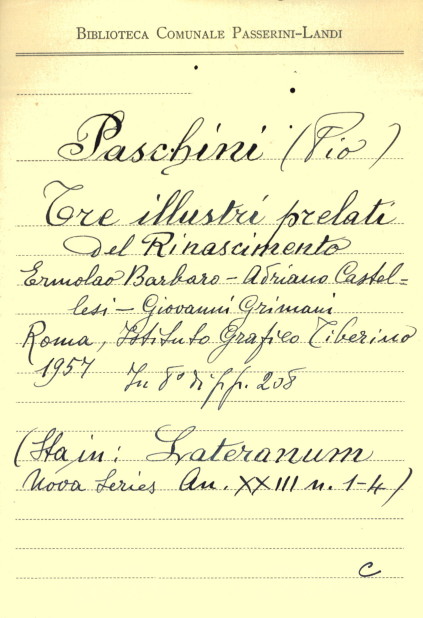 BIBLIOTECA COMUNALE PASSERINI-LANDI
Paschini (Pio)
Tre illustri prelati
del Rinascimento
Ermolao Barbaro - Adriano Castel=
lesi - Giovanni Grimani
Roma, Istituto Grafico Tiberino
1957 In 8° di pp. 208
(Sta in: Lateranum
Nova Series An. XXIII n. 1-4)
C